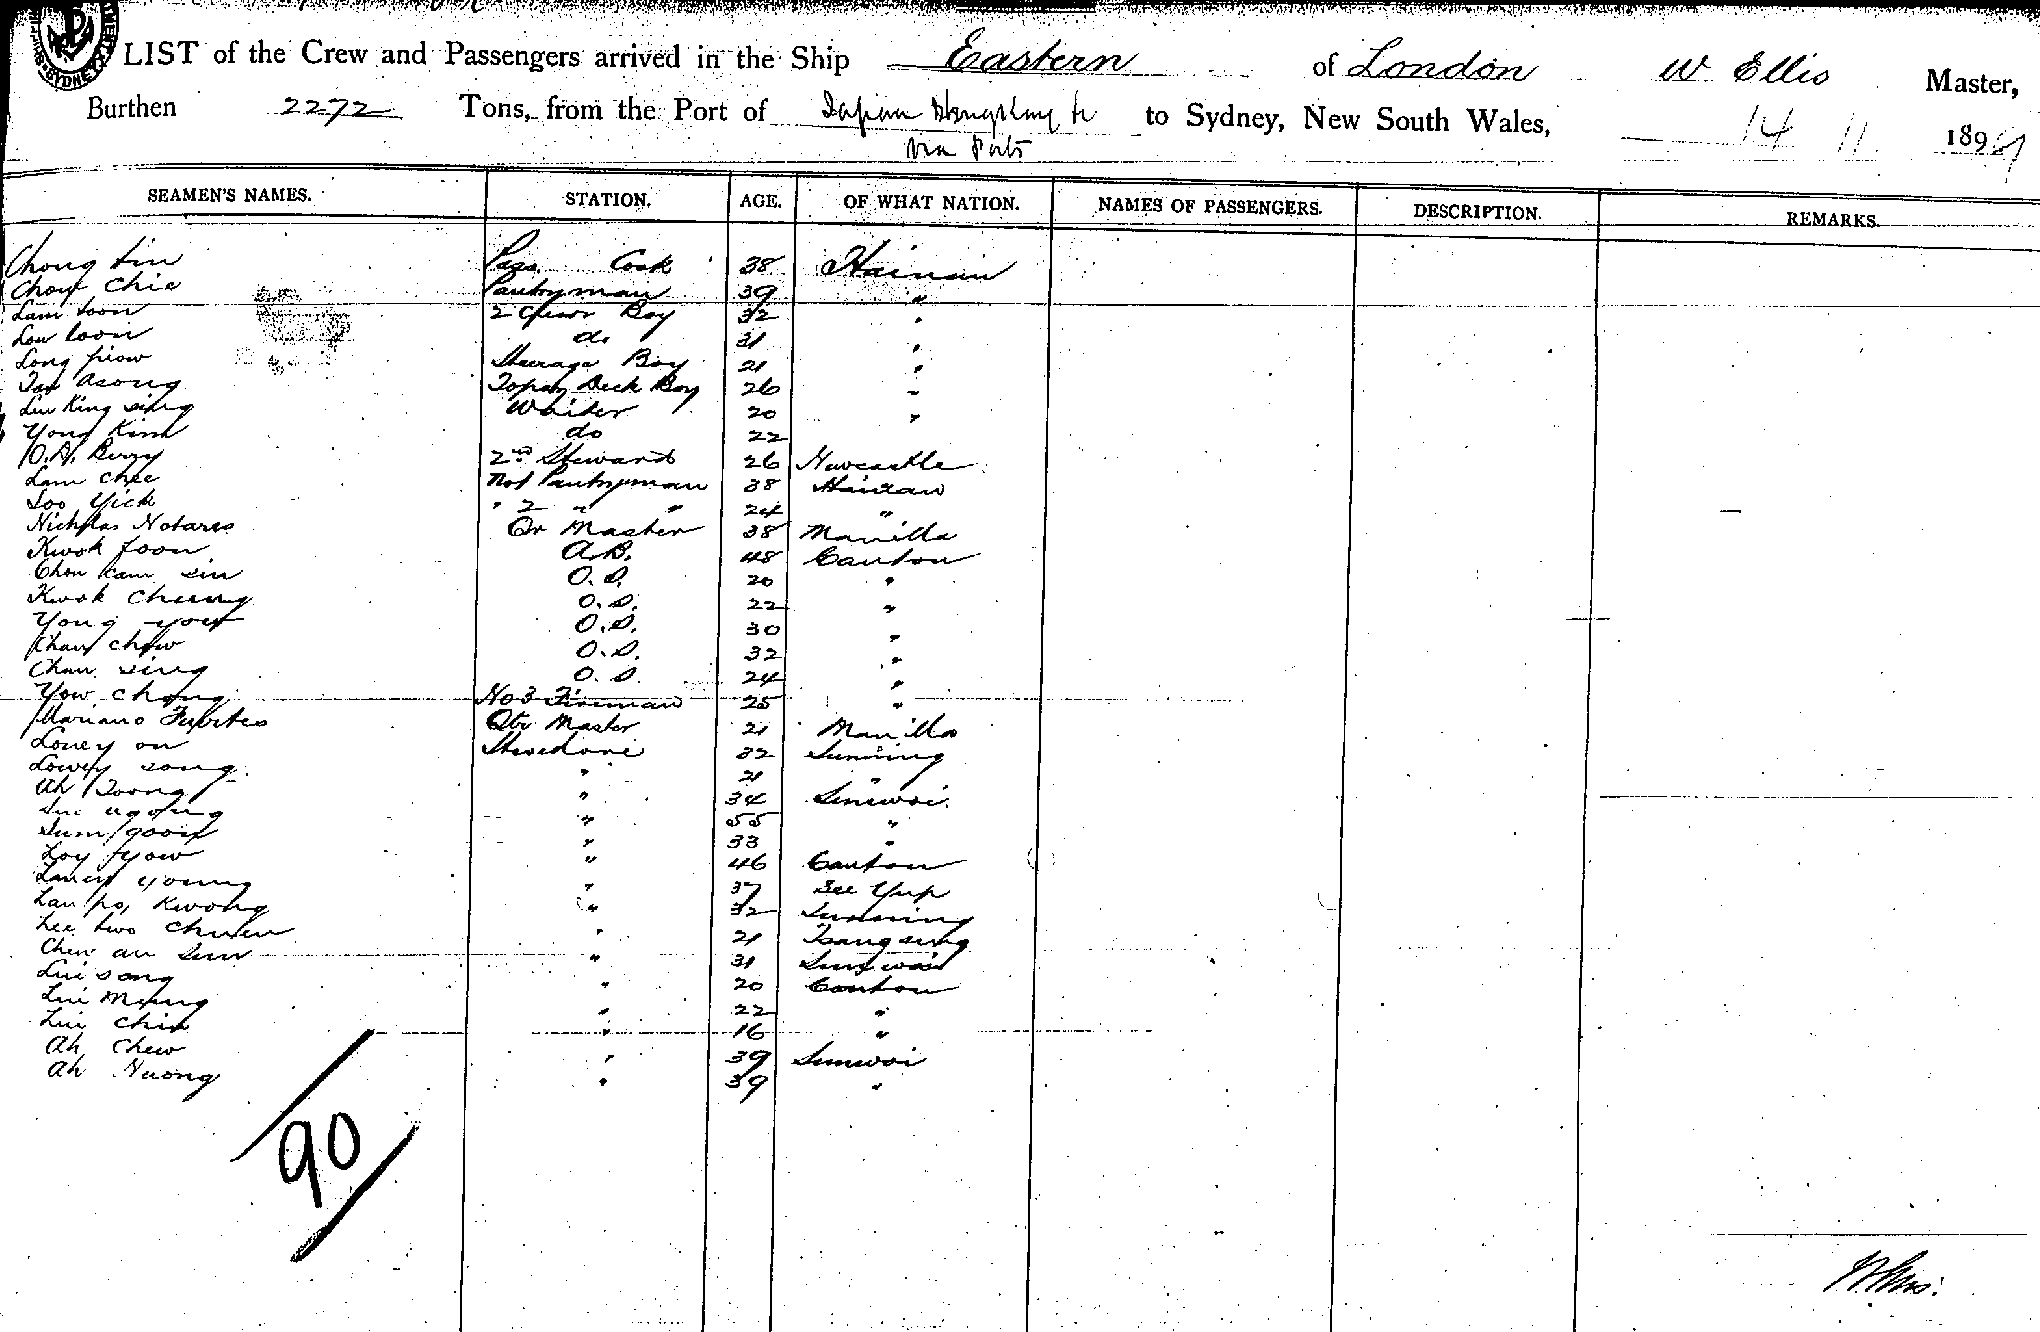 LIST of the Crew and Passengers arrived in the Ship Eastern of London W Ellis Master,
Burthen 2272 Tons, from the Port of Japan Hongkong & to Sydney, New South Wales, 14 11 189
via Ports
SEAMEN'S NAMES. STATION. AGE. OF WHAT NATION. NAMES OF PASSENGERS. DESCRIPTION. REMARKS.
Chong tin Pass. Cook 38 Hainan
Chow Chie Pantryman 39 "
Lam toon 2 Boy 32 "
Low toon do 31 "
Long piow Steerage Boy 21 "
Tan Asong Topaz Deck Boy 26 "
Lim King sing Waiter 20 "
Yong Kim do 22
2nd Steward 26 Newcastle
Lam Chee No1 Pantryman 38 Hainan
Soo Yick " 2 " " 24 "
Nicholas Notares Qr Master 38 Manilla
Kwok foon A.B. 48 Canton
Chon Kam sin O.S. 20 "
Kwok Cheung O.S. 22 "
Yong yow O.S. 30 "
Chan Chow O.S. 32 "
Chan sing O.S. 24 "
Yow Chong No 3 Fireman 25 "
Mariano Qtr Master 21 Manilla
Louey on Stevedore 32 Sunning
Lowey song " 21 "
Ah Toong " 34 Sunwoi
" 55 "
Sum goon " 33 "
Loy fyow " 46 Canton
Young " 37 See Yup
Lau po, Kwong " 32 Sunning
Lee two Chuen " 21 Tsangsing
Chew an Sun " 31 Sunwoi
Lui song " 20 Canton
Lui Mung " 22 "
Lui Chin " 16 "
Ah Chew " 39 Sunwoi
Ah Nuong " 39 "
90